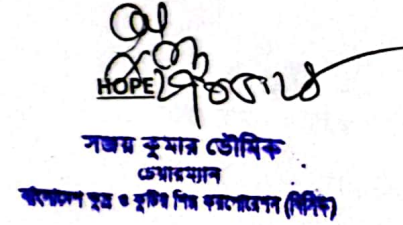 HOPE
সঞ্জয় কুমার ভৌমিক
চেয়ারম্যান
বাংলাদেশ ক্ষুদ্র ও কুটির শিল্প করপোরেশন (বিসিক)